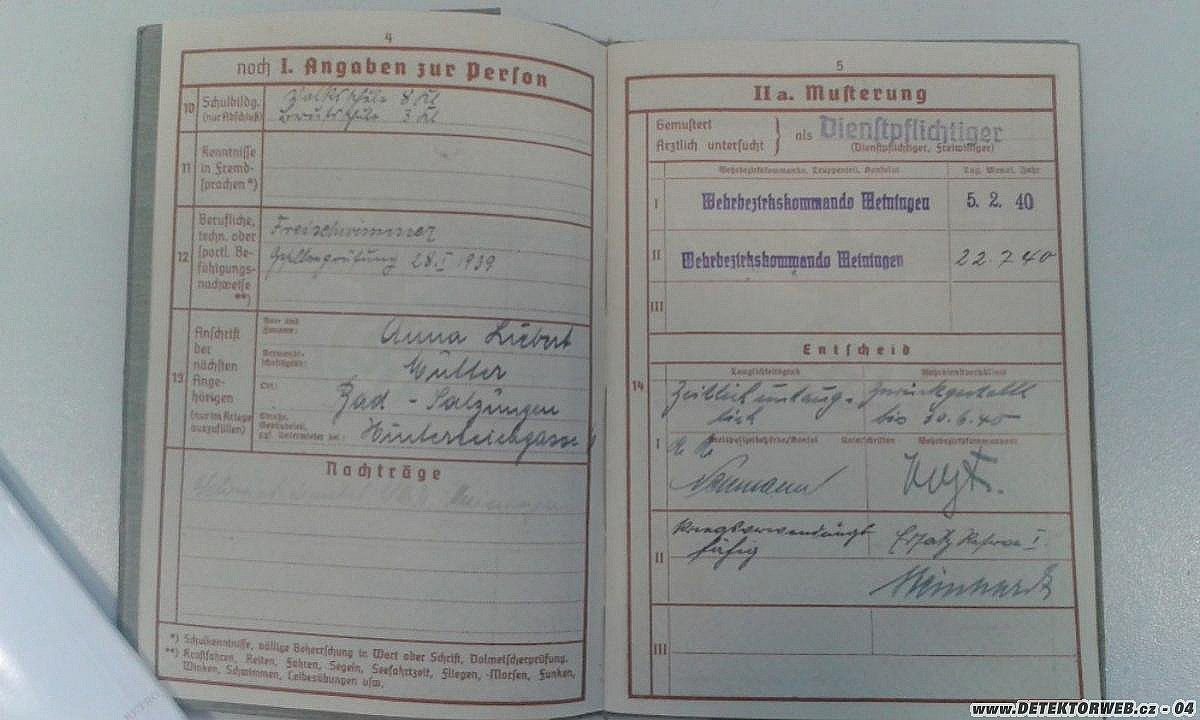 4
noch I. Angaben zur Person
10 Schulbildg. (nur Abschluß)
Volksschule 8 Kl
Berufsschule 3 Kl
11 Kenntnisse in Fremd-
sprachen *)
12 Berufliche, techn. oder sportl. Be-
fähigungs-
nachweise
**)
Freischwimmer
28.I 1939
13 Anschrift der nächsten Ange-
hörigen
(nur im Kriege auszufüllen)
Vor- und Zuname:
Anna Liebert
Verwandt-
schaftsgrad:
Mutter
Ort:
Bad - Salzungen
Straße, Gebäudeteil,
Hinterteichgasse
Nachträge
*) Schulkenntnisse, völlige Beherrschung in Wort oder Schrift, Dolmetscherprüfung.
**) Kraftfahren, Reiten, Fahren, Segeln, Seefahrtzeit, Fliegen, Morsen, Funken,
Winken, Schwimmen, Leibesübungen usw.
5
II a. Musterung
Gemustert
Ärztlich untersucht } als Dienstpflichtiger
(Dienstpflichtiger, Freiwilliger)
Wehrbezirkskommando, Truppenteil, Tag, Monat, Jahr
I Wehrbezirkskommando Meiningen 5. 2. 40
II Wehrbezirkskommando Meiningen 22.7 40
III
Entscheid
14
Tauglichkeitsgrad Wehrdienstverhältnis
Zeitlich untaug- Zurückgestellt
lich bis 30.6.40
I Unterschriften Wehrbezirkskommandeur
Vogt.
II Kriegsverwendungs- Ersatz Reserve I.
fähig
Meinhardt
III
www.DETEKTORWEB.cz - 04